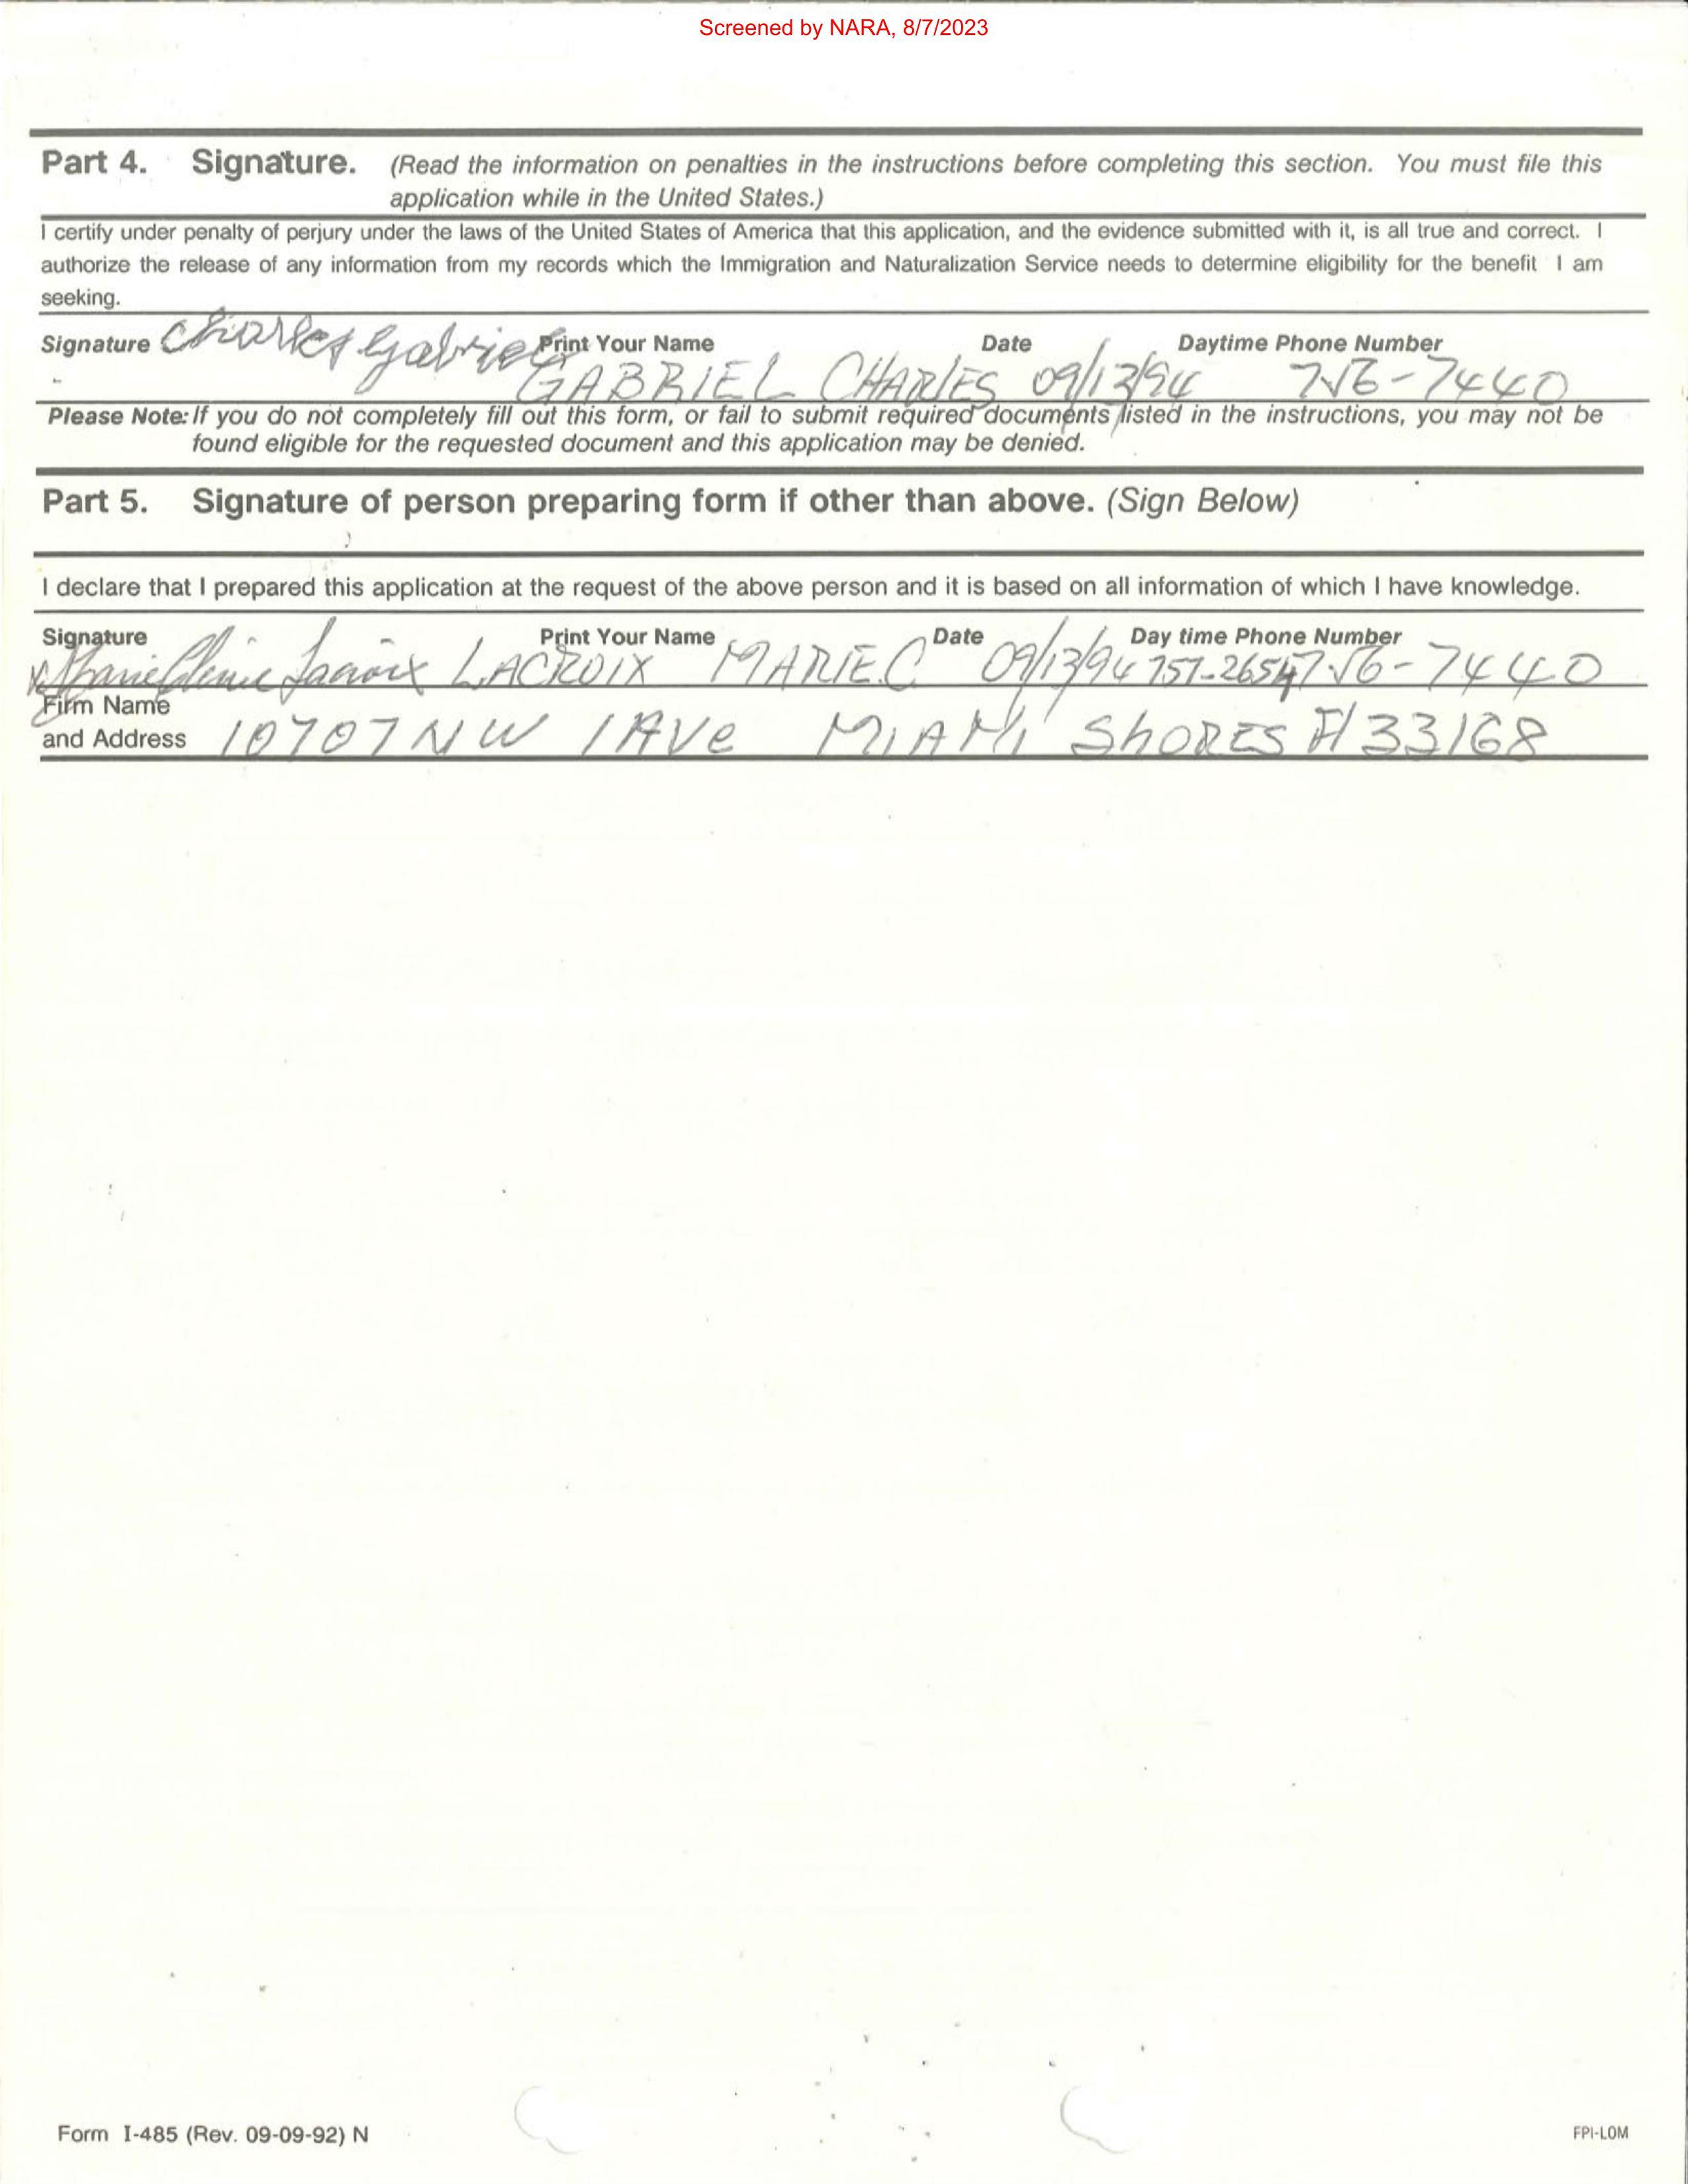 Screened by NARA, 8/7/2023
Part 4. Signature. (Read the information on penalties in the instructions before completing this section. You must file this
application while in the United States.)
I certify under penalty of perjury under the laws of the United States of America that this application, and the evidence submitted with it, is all true and correct. I
authorize the release of any information from my records which the Immigration and Naturalization Service needs to determine eligibility for the benefit I am
seeking.
Signature Print Your Name Date Daytime Phone Number
Charles Gabriel GABRIEL CHARLES 09/13/94 756-7440
Please Note: If you do not completely fill out this form, or fail to submit required documents listed in the instructions, you may not be
found eligible for the requested document and this application may be denied.
Part 5. Signature of person preparing form if other than above. (Sign Below)
I declare that I prepared this application at the request of the above person and it is based on all information of which I have knowledge.
Signature Print Your Name Date Day time Phone Number
Marie Lacroix LACROIX MARIE.C 09/13/94 757-2654 756-7440
Firm Name
and Address 10707 NW 1 AVe MiAMi ShORES Fl 33168
Form I-485 (Rev. 09-09-92) N
FPI-LOM